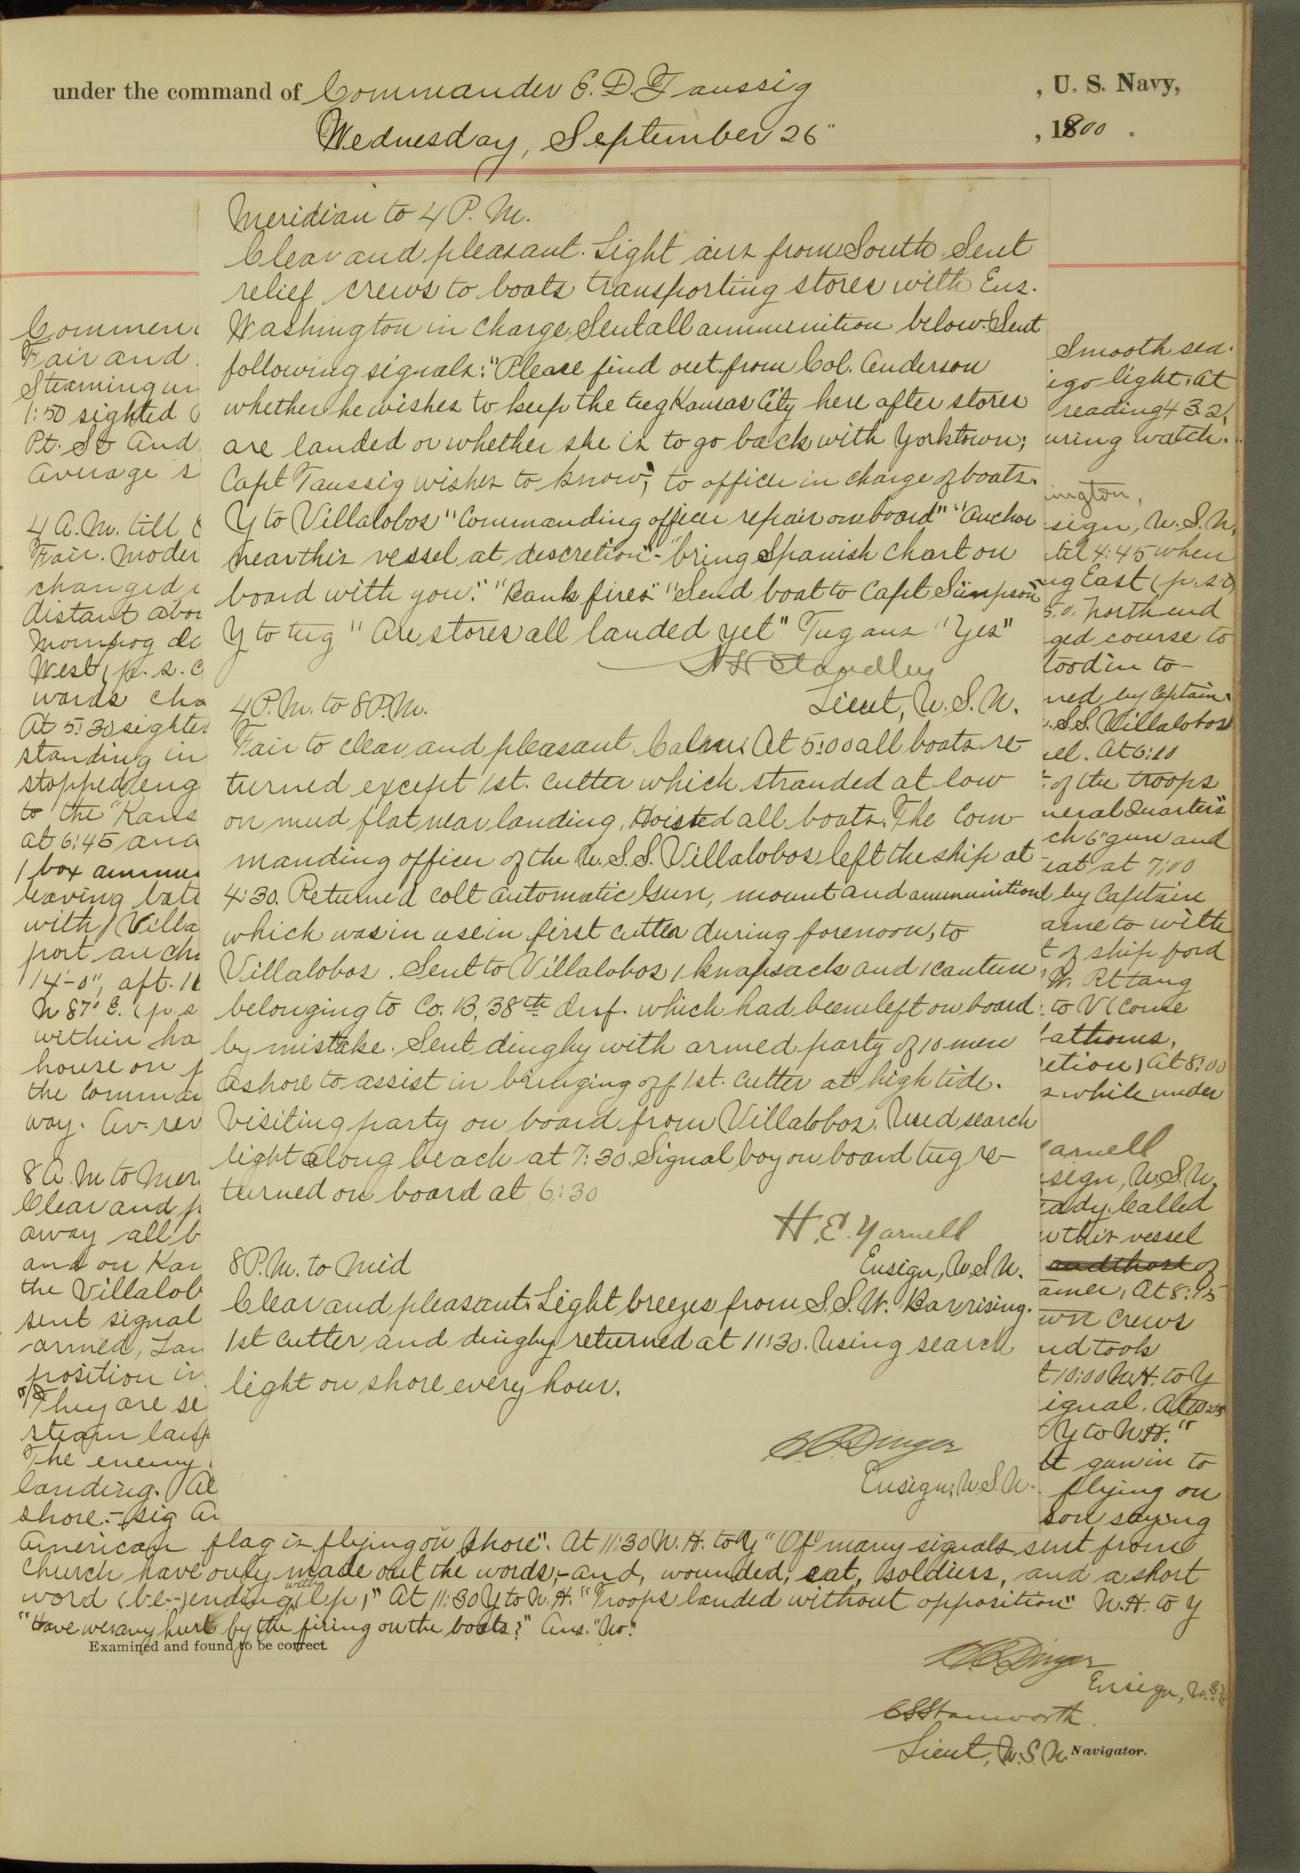 under the command of Commander E. D. Taussig , U. S. Navy,
Wednesday, September 26" , 1900 .
Meridian to 4 P. M.
Clear and pleasant. Light airs from South. Sent
relief crews to boats transporting stores with Ens.
Washington in charge. Sent all ammunition below. Sent
following signals: "Please find out from Col. Anderson
whether he wishes to keep the tug Kansas City here after stores
are landed or whether she is to go back with Yorktown;
Capt Taussig wishes to know", to officer in charge of boats.
Y to Villalobos "Commanding officer repair on board" "Anchor
near this vessel at discretion" - "bring Spanish chart on
board with you." "Bank fires" "Send boat to Capt Simpson"
Y to tug "Are stores all landed yet" Tug ans "Yes"
Standley
Lieut, U. S. N.
4 P.M. to 8 P.M.
Fair to clear and pleasant. Calm. At 5:00 all boats re-
turned except 1st. cutter which stranded at low
on mud flat near landing. Hoisted all boats. The Com-
manding officer of the U. S. S. Villalobos left the ship at
4:30. Returned colt automatic gun, mount and ammunition
which was in use in first cutter during forenoon, to
Villalobos. Sent to Villalobos 1 knapsack and 1 canteen
belonging to Co. B, 38th Inf. which had been left on board
by mistake. Sent dinghy with armed party of 10 men
ashore to assist in bringing off 1st. cutter at high tide.
Visiting party on board from Villalobos. Used search
light along beach at 7:30. Signal boy on board tug re-
turned on board at 6:30
H. E. Yarnell
Ensign, U.S.N.
8 P.M. to Mid
Clear and pleasant. Light breezes from S.S.W. Bar rising.
1st cutter and dinghy returned at 11:30. Using search
light on shore every hour.
Dinger
Ensign, U.S.N.
Commen
Fair and
Steaming
1:50 sighted
Pt. So And
average s
4 A.M. till
Fair. Moder
changed
distant abou
Mompog
West (p. s. c
wards cha
At 5:30 sighted
standing in
stopped eng
to the "Kans
at 6:45 and
1 box ammu
leaving
with Villa
port anch
14'-0", aft.
N 87° E. (p s
within ha
house on p
the Comman
way. Av. rev
8 A. M to Mer
Clear and p
away all b
and on Kan
the Villalob
sent signal
armed,
position in
"They are se
steam
The enemy
landing. At
shore. - sig
Smooth sea.
light. At
reading 43.2
uring watch.
ington,
sign, U.S.N.
til 4:45 when
ng East (p.s.c)
North end
ged course to
tood in to
ned by Captain
S.S. Villalobos
ell. At 6:10
of the troops
neral Quarters"
ch 6" gun and
eat at 7:00
by Captain
ame to with
of ship ford
to V (come
athoms,
etion) At 8:00
s while under
arnell
sign, U.S.N.
eady. Called
this vessel
and those of
amer, At 8:
own crews
nd took
t 10:00 N.H. to Y
ignal. At
Y to N.H. "
gun in to
flying on
son saying
American flag is flying on shore". At 11:30 N. H. to Y "Of many signals sent from
church have only made out the words, - and, wounded, eat, soldiers, and a short
word (be--) ending with (lp)" At 11:30 Y to N. H. "Troops landed without opposition" N.H. to Y
"Have we any hurt by the firing on the boats?" Ans. "No."
Examined and found to be correct.
Dinger
Ensign, U.S.N.
C S Stanworth.
Lieut, U.S.N. Navigator.